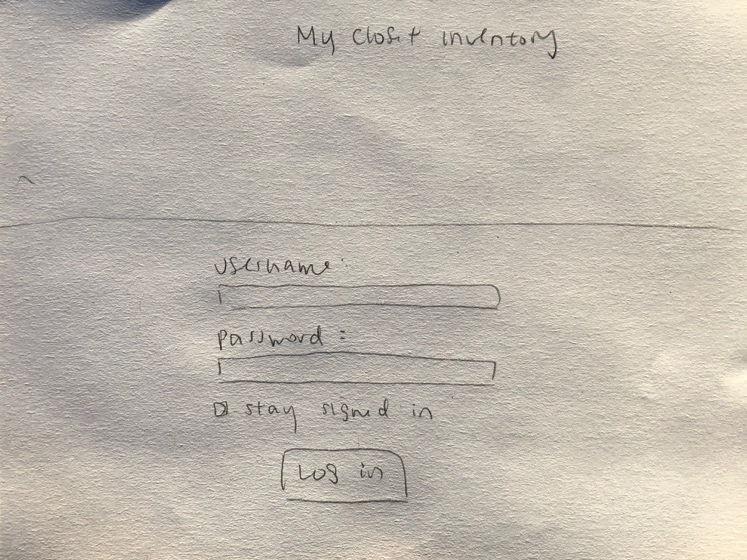 My closet inventory
username:
password:
stay signed in
Log in